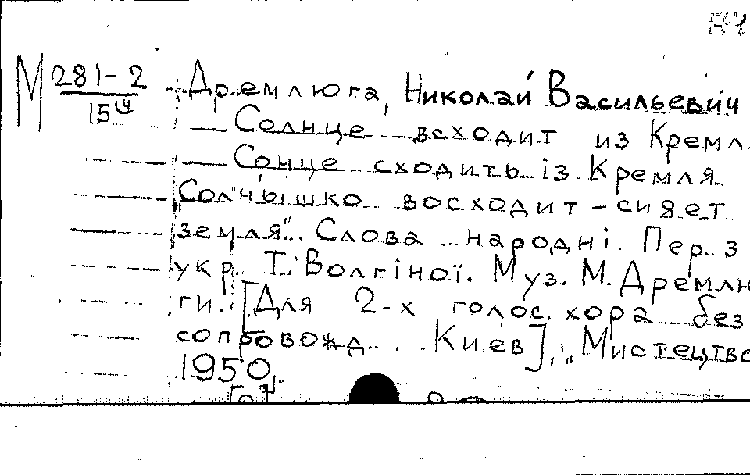 М 281-2
15
Дремлюга, Николай Васильевич
— Солнце всходит из Кремл
— Сонце сходить із Кремля
"Солнышко восходит - сияет
земля". Слова народні. Пер. з
укр. Т. Волгіної. Муз. М. Дремлю
ги. [Для 2-х голос. хора без
сопровожд. . . Киев], "Мистецтво
1950.